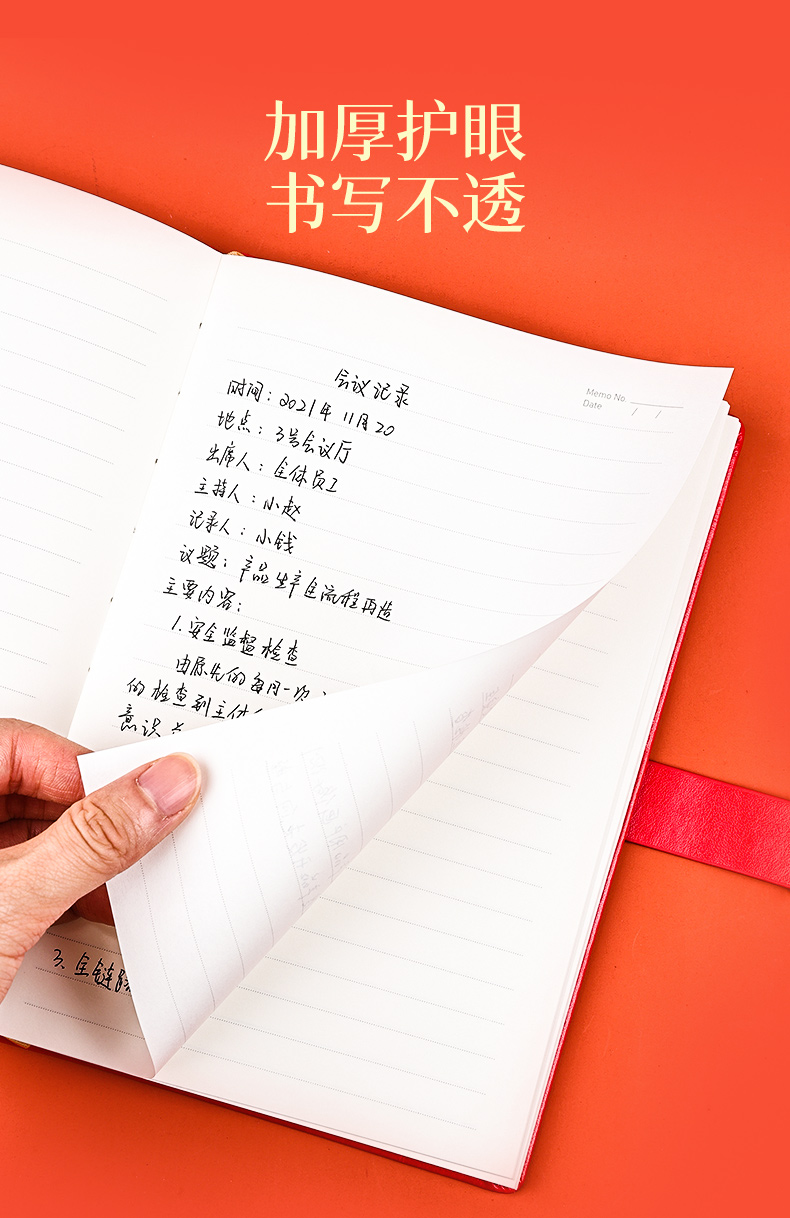 加厚护眼
书写不透
Memo No.
Date / /
会议记录
时间：2021年11月20
地点：3号会议厅
出席人：全体员工
主持人：小赵
记录人：小钱
议题：产品生产自流程再造
主要内容：
1.安全监督检查
由原先的每月一次
的检查到主体
意识
3.全链